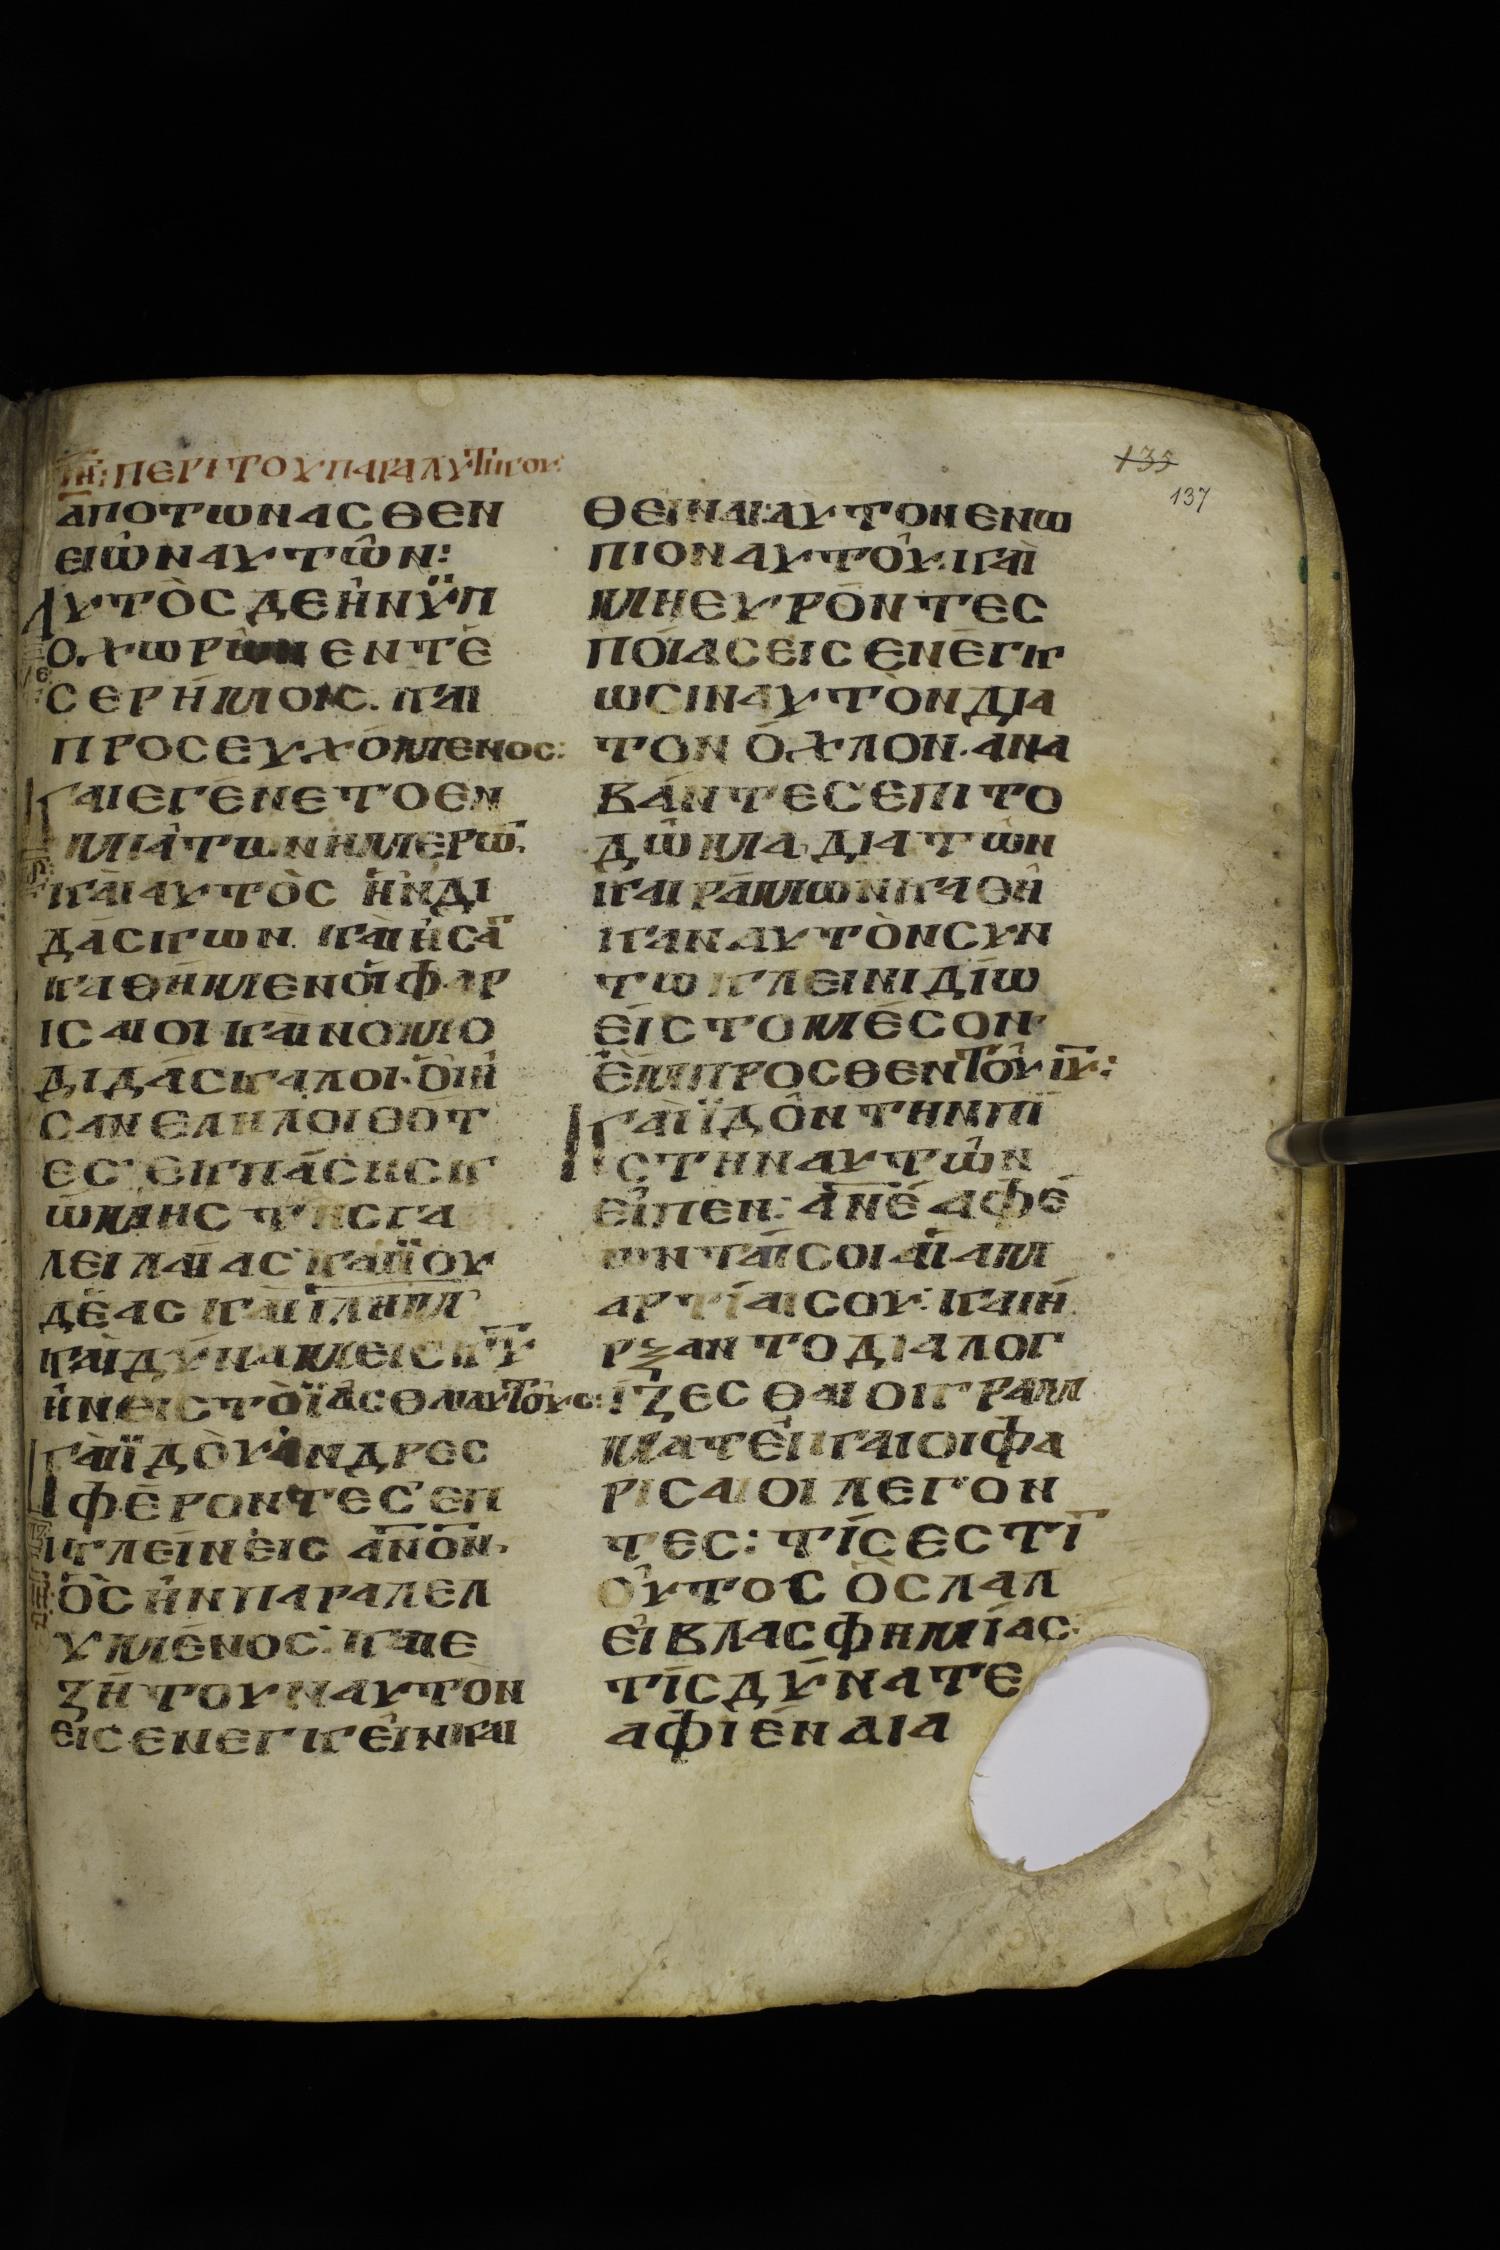 ΙΗ: ΠΕΡΙ ΤΟΥ ΠΑΡΑΛΥΤΙΚΟΥ:
135
137
ΑΠΟΤΩΝΑΣΘΕΝ
ΕΙὼΝΑΥΤῶΝ:
ΑΥΤῸΣΔΕἨΝΫΠ
ΟΧΩΡῶΝΕΝΤΕ
ΣΕΡΉΜΟΙΣ. ΚΑΙ
ΠΡΟΣΕΥΧΌΜΕΝΟΣ:
ΚΑΙΕΓΈΝΕΤΟΕΝ
ΜΙΑΤΩΝΗΜΕΡΩ̅.
ΚΑῚΑΥΤῸΣ ἨΝΔΙ
ΔΆΣΚΩΝ. ΚΑῚἨΣΑ̅
ΚΑΘΉΜΕΝΟΙΦΑΡ
ΙΣΑΙΟΙ ΚΑῚΝΟΜΟ
ΔΙΔΆΣΚΑΛΟΙ· ΟἹἨ
ΣΑΝΕΛΗΛΟΙΘΌΤ
ΕΣ ΕΚΠΆΣΗΣΚ
ΏΜΗΣ ΤΗΣΓΑ
ΛΕΙΛΑΊΑΣ ΚΑῚΪΟΥ
ΔΈΑΣ ΚΑῚΙ̅Λ̅Η̅Μ̅
ΚΑῚΔΎΝΑΜΕΙΣΚ̅Υ̅
ἨΝΕΙΣΤῸΪΑΣΘΑΙΑΥΤΟΥΣ:
ΚΑῚΪΔΟῪΆΝΔΡΕΣ
ΦΈΡΟΝΤΕΣ ΕΠ
ΙΚΛΕΊΝΕΙΣ Α̅Ν̅Ο̅Ν̅.
ὋΣ ἨΝΠΑΡΑΛΕΛ
ΥΜΈΝΟΣ: ΚΑΙΕ
ΖΉΤΟΥΝΑΥΤΟΝ
ΕΙΣΕΝΕΓΚΕΙΝΚΑΙ
ΘΕΙΝΑΙ:ΑΥΤΟΝΕΝΩ
ΠΙΟΝΑΥΤΟΥ.ΚΑῚ
ΜΗΕΥΡΌΝΤΕΣ
ΠΟΊΑΣΕΙΣΕΝΈΓΚ
ΩΣΙΝΑΥΤῸΝΔΙΑ
ΤΟΝ ΌΧΛΟΝ. ΑΝΑ
ΒΆΝΤΕΣ ΕΠΙΤΟ
ΔῶΜΑ ΔΙΑΤῶΝ
ΚΑΙΡΆΜΩΝΚΑΘΗ
ΚΑΝΑΥΤῸΝΣΥΝ
ΤΩΚΛΕΙΝΙΔΊΩ
ΕΊΣΤΟΜΈΣΟΝ
ΈΜΠΡΟΣΘΕΝΤΟΥ Ι̅Υ̅:
ΚΑῚΪΔῸΝΤΗΝΠΪ
ΣΤΗΝΑΥΤῶΝ
ΕἸΠΕΝ: Α̅Ν̅Ε̅ ΑΦΈ
ΩΝΤΑΊΣΟΙΑἹΑΜ
ΑΡΤΊΑΙΣΟΥ: ΚΑΙΉ
ΡΞΑΝΤΟΔΙΑΛΟΓ
ΊΖΕΣΘΑΙΟΙΓΡΑΜ
ΜΑΤΕΙΣΚΑΙΟΙΦΑ
ΡΙΣΑΙΟΙΛΕΓΟΝ
ΤΕΣ: ΤΊΣΕΣΤΙ̅
ΟὙΤΟΣ ὋΣΛΑΛ
ΕΙΒΛΑΣΦΗΜΊΑΣ:
ΤΊΣΔΎΝΑΤΕ
ΑΦΙΈΝΑΙΑ